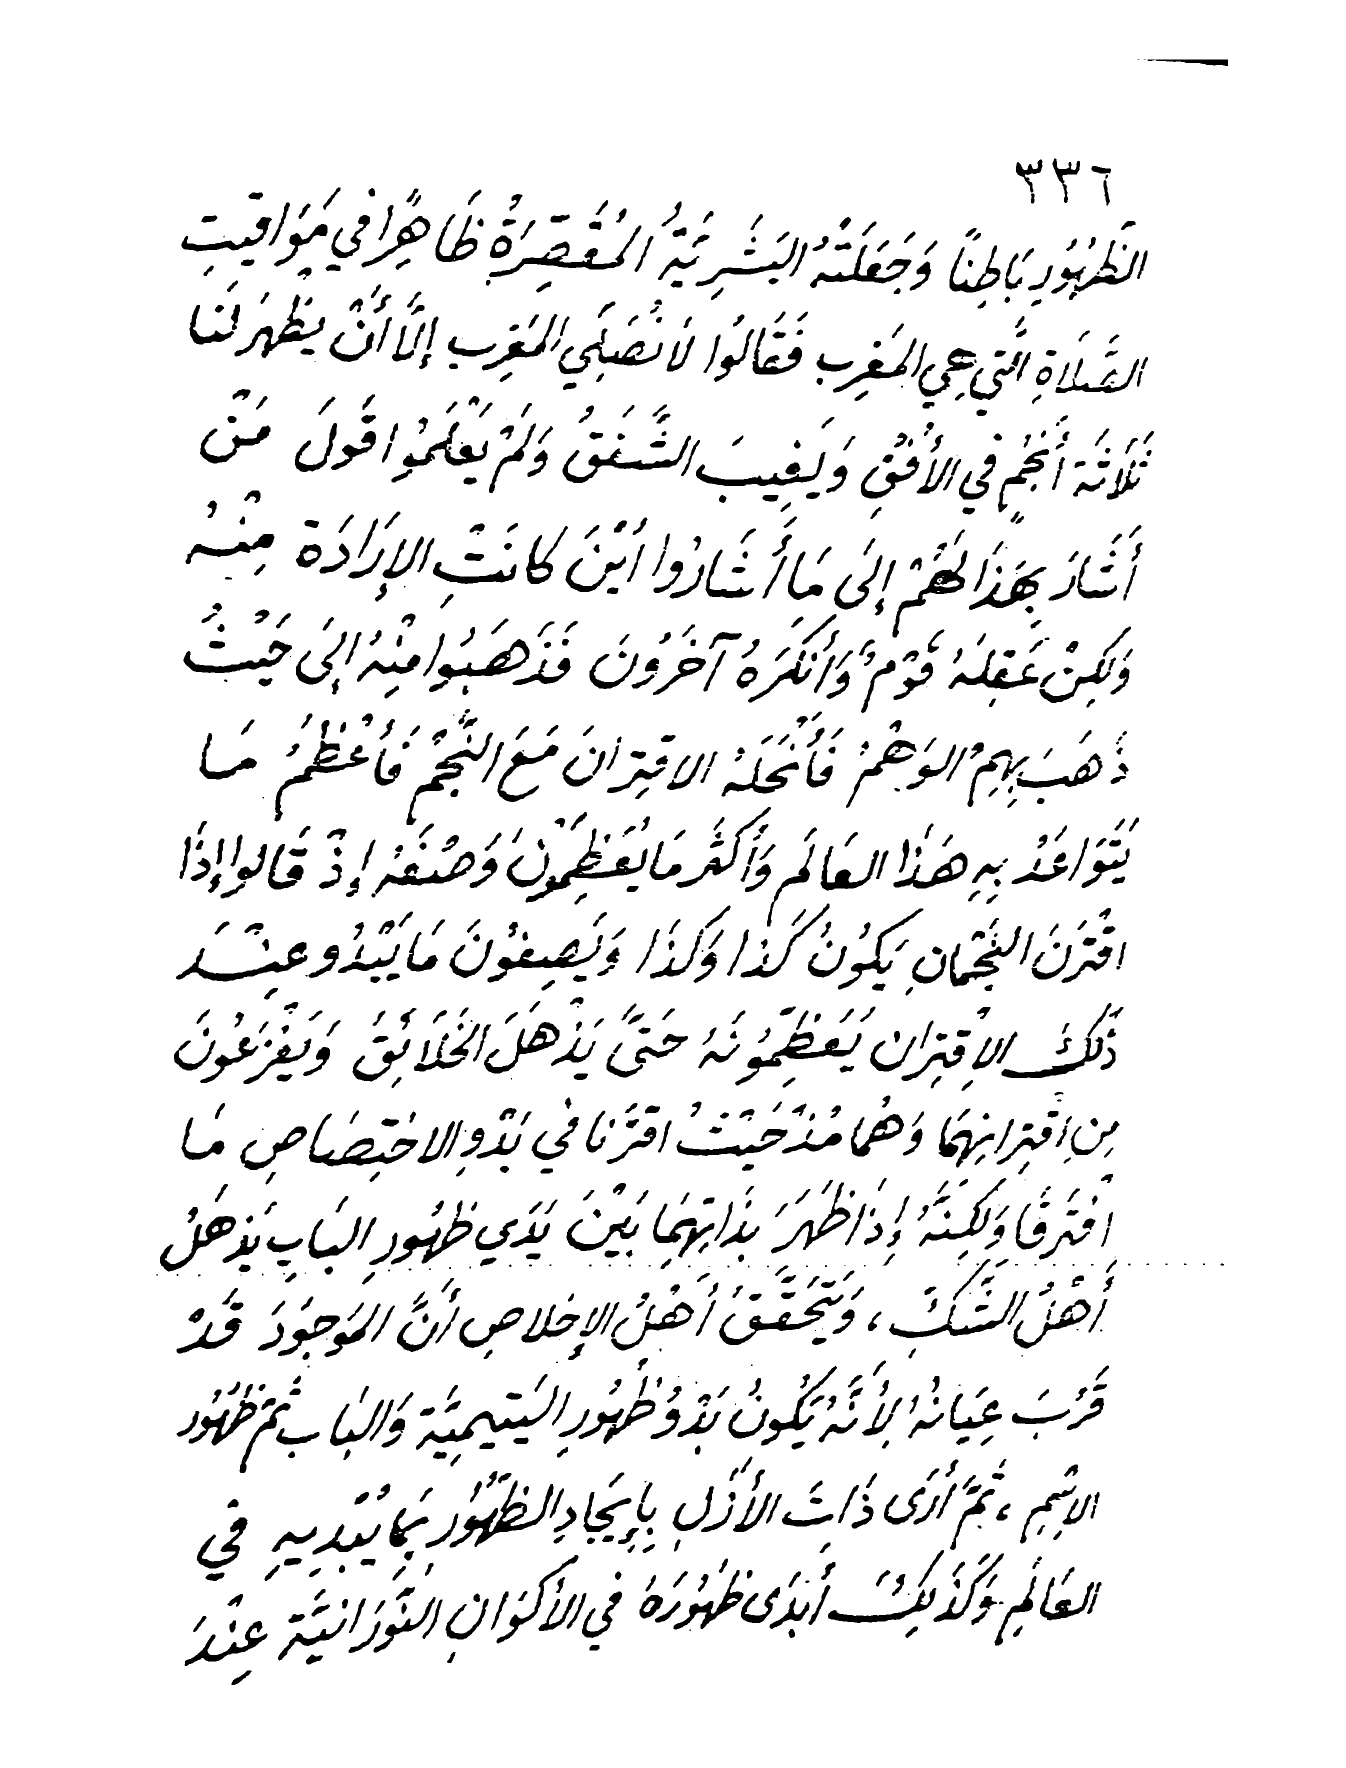 ٣٣٦
الظُّهُورِ بَاطِنًا وَجَعَلَتْهُ البَشَرِيَّةُ المُقَصِّرَةُ ظَاهِرًا في مَوَاقِيتِ
الصَّلَاةِ الَّتي هِيَ المَغرِب فَقَالُوا لَا نُصَلِّي المَغرِب إلَّا أَنْ يَظْهَرَ لَنَا
ثَلَاثَة أَنْجُمٍ في الأُفُقِ وَيَغِيبَ الشَّفَقُ وَلَمْ يَعْلَمُوا قَولَ مَنْ
أَشَارَ بِهَذَا لَهُمْ إِلَى مَا أَشَارُوا أَيْنَ كانَتِ الإِرَادَة مِنْهُ
وَلَكِنْ عَقِلَهُ قَوْمٌ وَأَنكَرَهُ آخَرُونَ فَذَهَبُوا مِنْهُ إلَى حَيْثُ
ذَهَبَ بِهِمِ الوَهْمُ فَأَنْحَلَهُ الاقتِرانَ مَعَ النَّجْمِ فَأَعْظَمُ مَا
يَتَوَاعَدُ بِهِ هَذَا العَالَم وَأَكثَر مَا يُعَظِّمُونَ وَصْفَهُ إِذْ قَالوا إِذَا
اقْتَرَنَ النَّجْمَانِ يَكُونُ كَذَا وَكَذَا وَيَصِفُونَ مَا يَبْدُو عِنْدَ
ذَلكَ الاِقْتِران يُعَظِّمُونَهُ حَتَّى يَذْهَلَ الخَلَائِقُ وَيَفْزَعُونَ
مِنِ اقْتِرانِهِمَا وَهُما مُذْ حَيْثُ اقْتَرَنا في بَدْوِ الاختِصَاصِ مَا
افْتَرَقَا وَلَكِنَّهُ إِذَا ظَهَرَ بِذَاتِهِمَا بَيْنَ يَدَي ظُهُورِ البَابِ يَذهَلُ
أَهْلُ الشَّكِّ، وَيَتَحَقَّقُ أَهْلُ الإِخلاصِ أَنَّ المَوجُودَ قَدْ
قَرُبَ عِيَانُهُ لِأَنَّهُ يَكُونُ بَدْوُ ظُهُورِ اليَتِيمِيَّة وَالبَاب ثُمَّ ظُهُور
الاِسْمِ، ثُمَّ أَرَى ذَاتَ الأَزَلِ بِإِيجَادِ الظُّهُورِ بِمَا يُبْدِيهِ في
العَالَمِ وَكَذَلِكَ أَبدَى ظُهُورَهُ في الأَكوَانِ النُّورَانِيَّة عِنْدَ